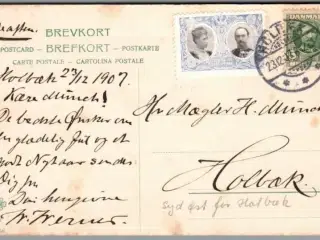 BREVKORT
POSTCARD · BREFKORT · POSTKARTE
CARTE POSTALE · CARTOLINA POSTALE
Holbæk 23/12 1907.
Kære Munch!
De bedste Ønsker om
en glædelig Jul og et
godt Nytaar sendes
Dig fra
Din hengivne
Hr. Mægler H. Munch
Holbæk
Syd øst for Holbæk